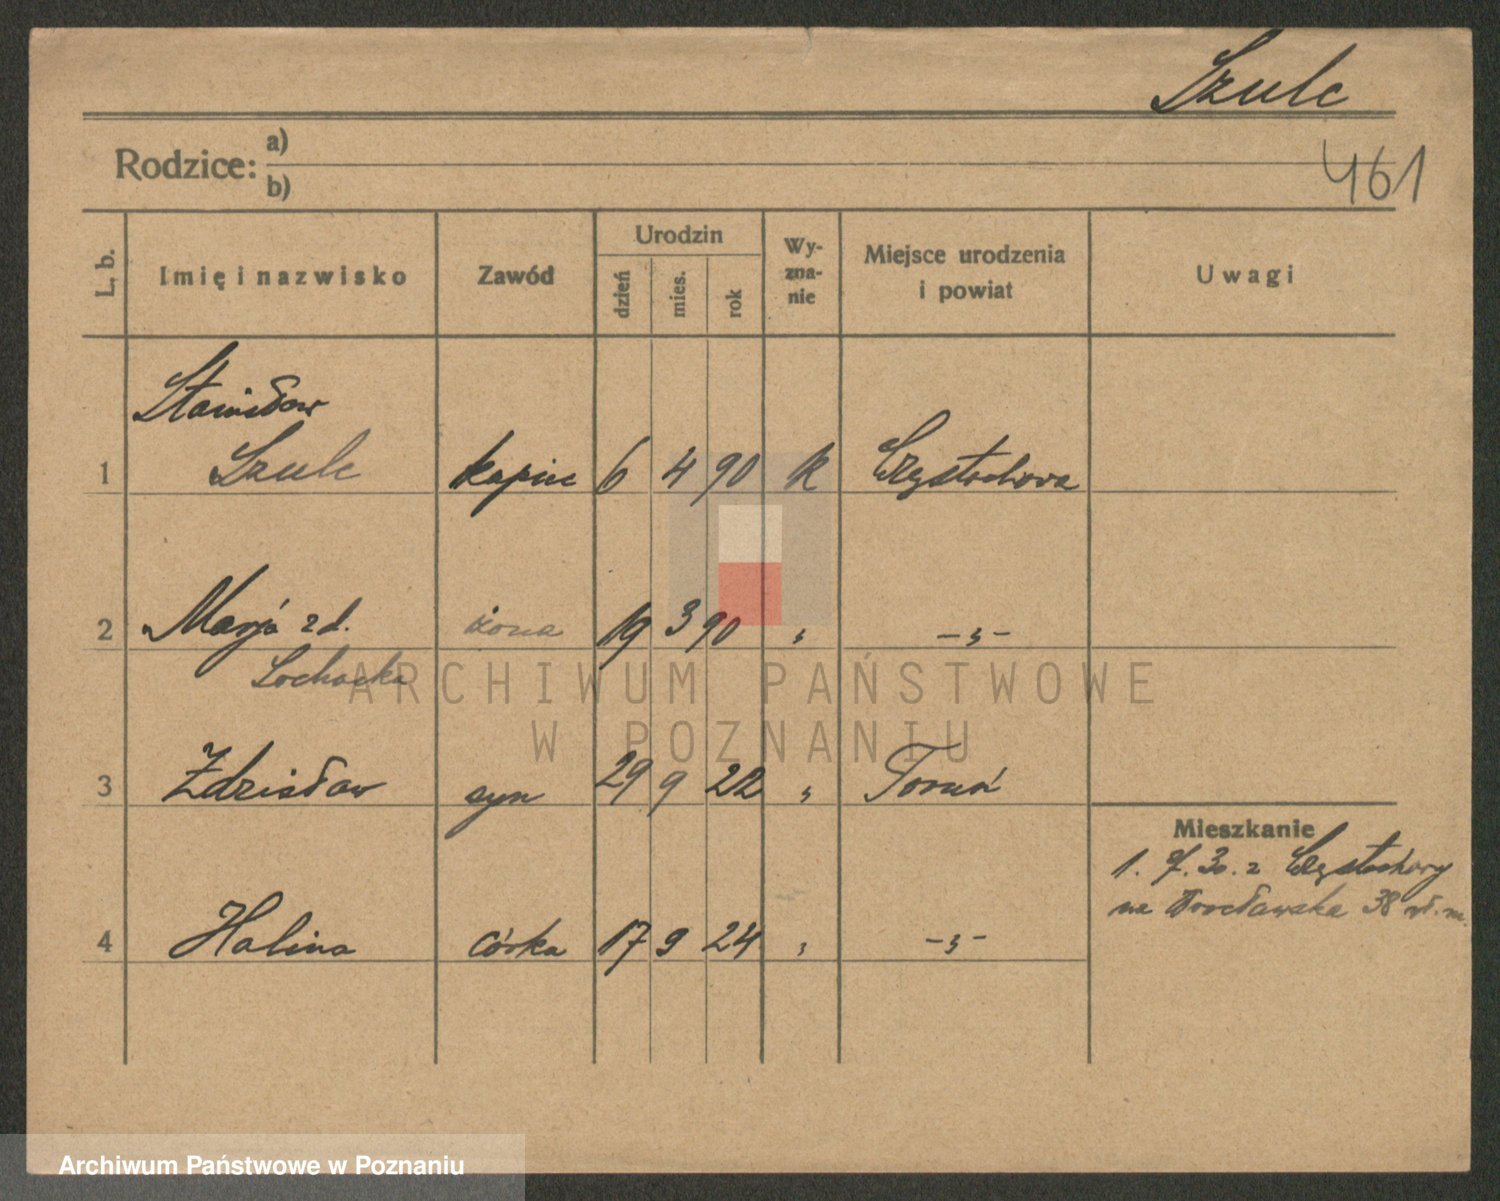 Szulc
461
Rodzice: a)
b)
L. b.
Imię i nazwisko
Zawód
Urodzin
dzień
mies.
rok
Wy-
zna-
nie
Miejsce urodzenia
i powiat
Uwagi
Stanisław
1 Szulc kupiec 6 4 90 k Częstochowa
2 Marja zd. żona 19 3 90 " -"-
Lochacka
3 Zdzisław syn 29 9 22 " Toruń
Mieszkanie
1. 7. 30. z Częstochowy
na Wrocławska 38
4 Halina córka 17 9 24 " -"-
ARCHIWUM PAŃSTWOWE
W POZNANIU
Archiwum Państwowe w Poznaniu